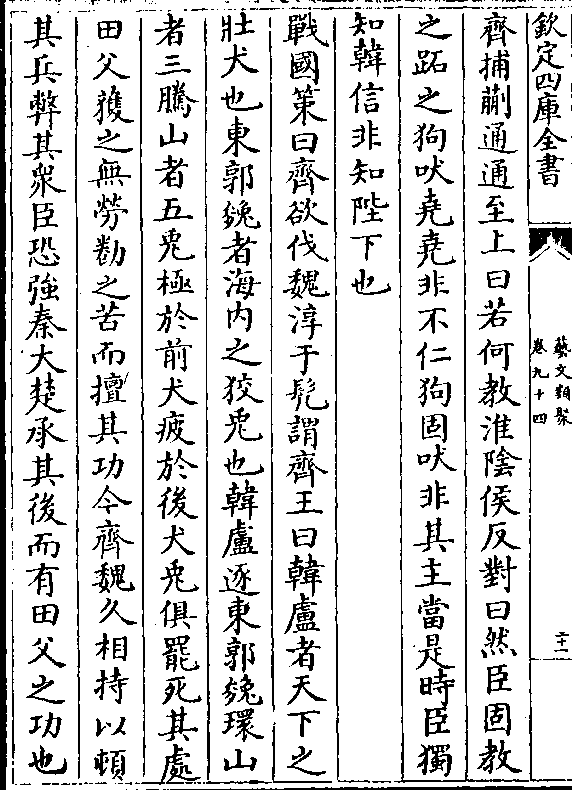 欽定四庫全書
藝文類聚
卷九十四
二十一
齊捕蒯通通至上曰若何教淮陰侯反對曰然臣固教
之跖之狗吠堯堯非不仁狗固吠非其主當是時臣獨
知韓信非知陛下也
戰國策曰齊欲伐魏淳于髠謂齊王曰韓盧者天下之
壯犬也東郭㕙者海内之狡兎也韓盧逐東郭㕙環山
者三騰山者五兎極於前犬疲於後犬兎俱罷死其處
田父獲之無勞勌之苦而擅其功今齊魏久相持以頓
其兵弊其衆臣恐強秦大楚承其後而有田父之功也